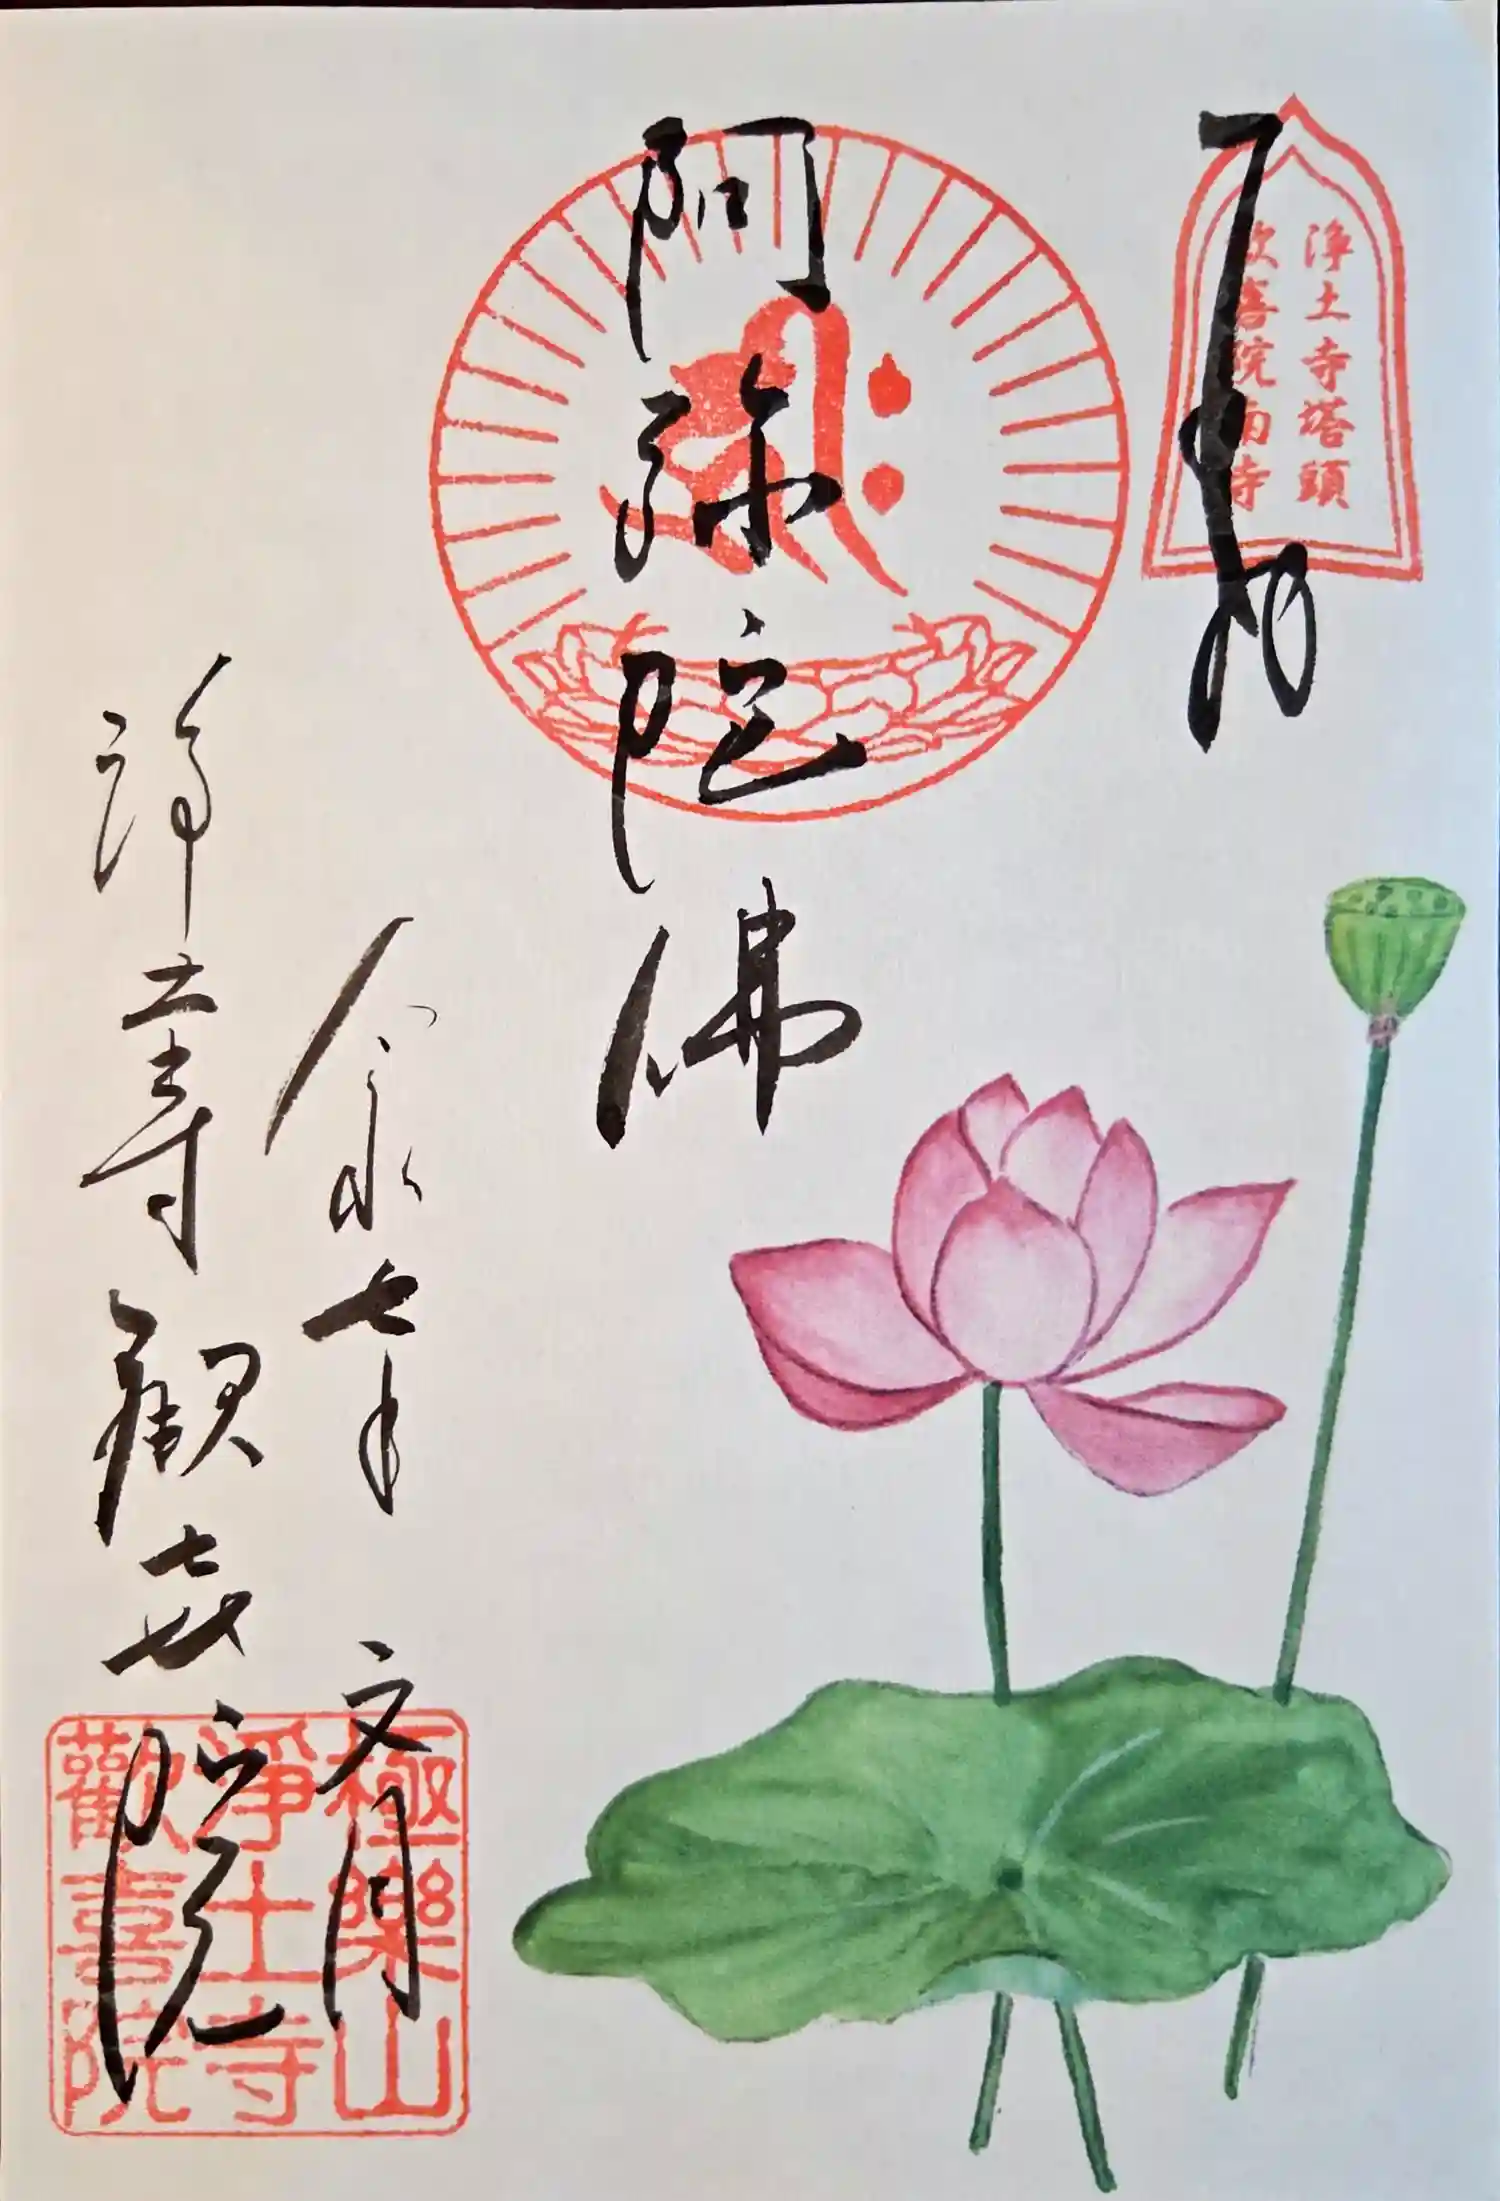 奉拝
浄土寺塔頭
歓喜院南寺
阿弥陀佛
令和七年 文月
浄土寺 歓喜院
極樂山
淨土寺
歡喜院